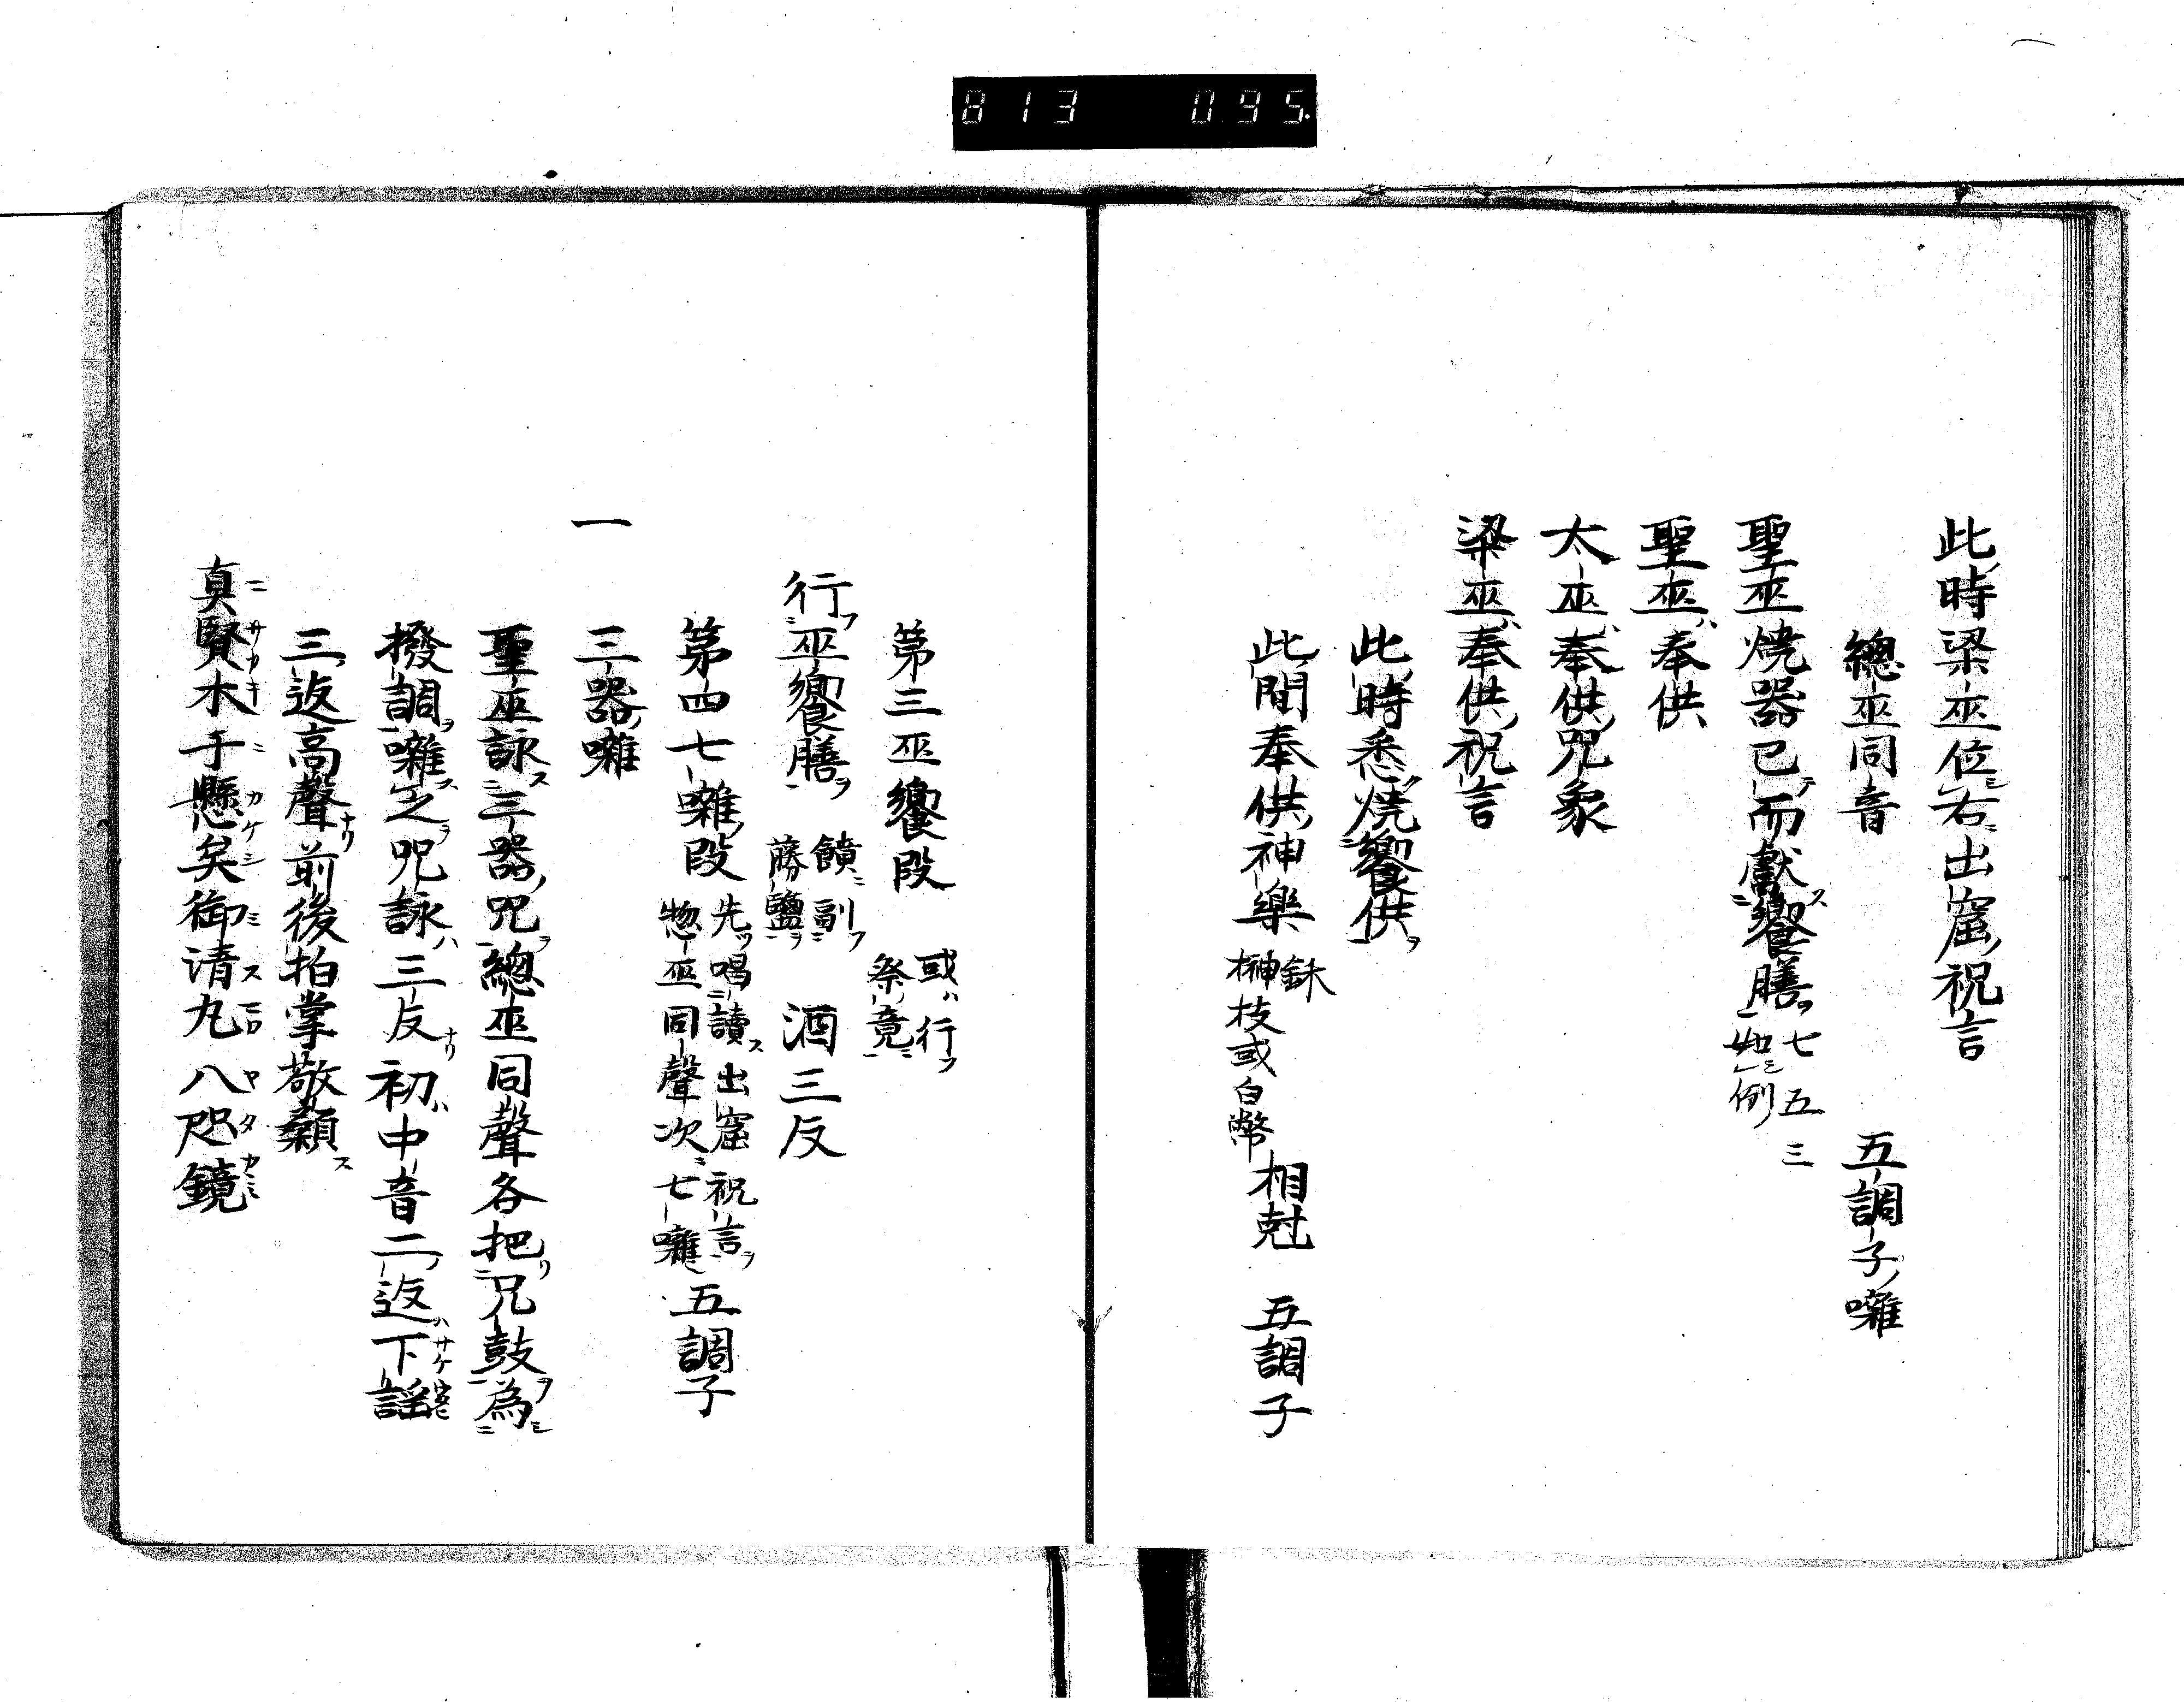 813 095
此時梁巫位右出窟祝言
總巫同音 五調子囃
聖巫焼器已而獻饗膳 七五三 如例
聖巫奉供
太巫奉供咒象
梁巫奉供祝言
此時悉焼饗供
此間奉供神樂 銖榊枝或白幣 相尅 五調子
第三巫饗段 或行祭竟
行巫饗膳 饋副藤鹽 酒三反
第四七囃段 先唱讀出窟祝言惣巫同聲次七囃 五調子
一 三器囃
聖巫詠三器咒總巫同聲各把兄鼓為
撥調囃之咒詠三反初中音二返下謡
三返高聲前後拍掌敬顙
真賢木于懸矣御清丸八咫鏡